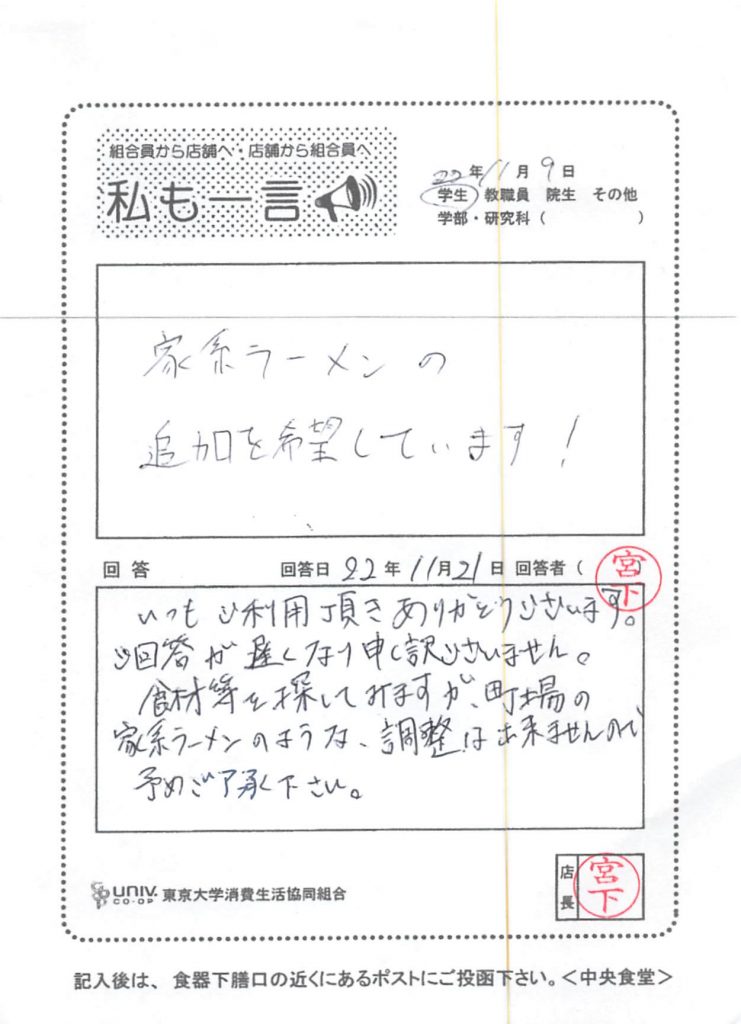 組合員から店舗へ・店舗から組合員へ
私も一言
22年11月9日
学生 教職員 院生 その他
学部・研究科( )
家系ラーメンの
追加を希望しています!
回答 回答日 22年11月21日 回答者( 宮下
いつもご利用頂きありがとうございます。
ご回答が遅くなり申し訳ございません。
食材等を探してみますが、町場の
家系ラーメンのような、調整は出来ませんので
予めご了承下さい。
UNIV. CO-OP 東京大学消費生活協同組合
店長 宮下
記入後は、食器下膳口の近くにあるポストにご投函下さい。<中央食堂>